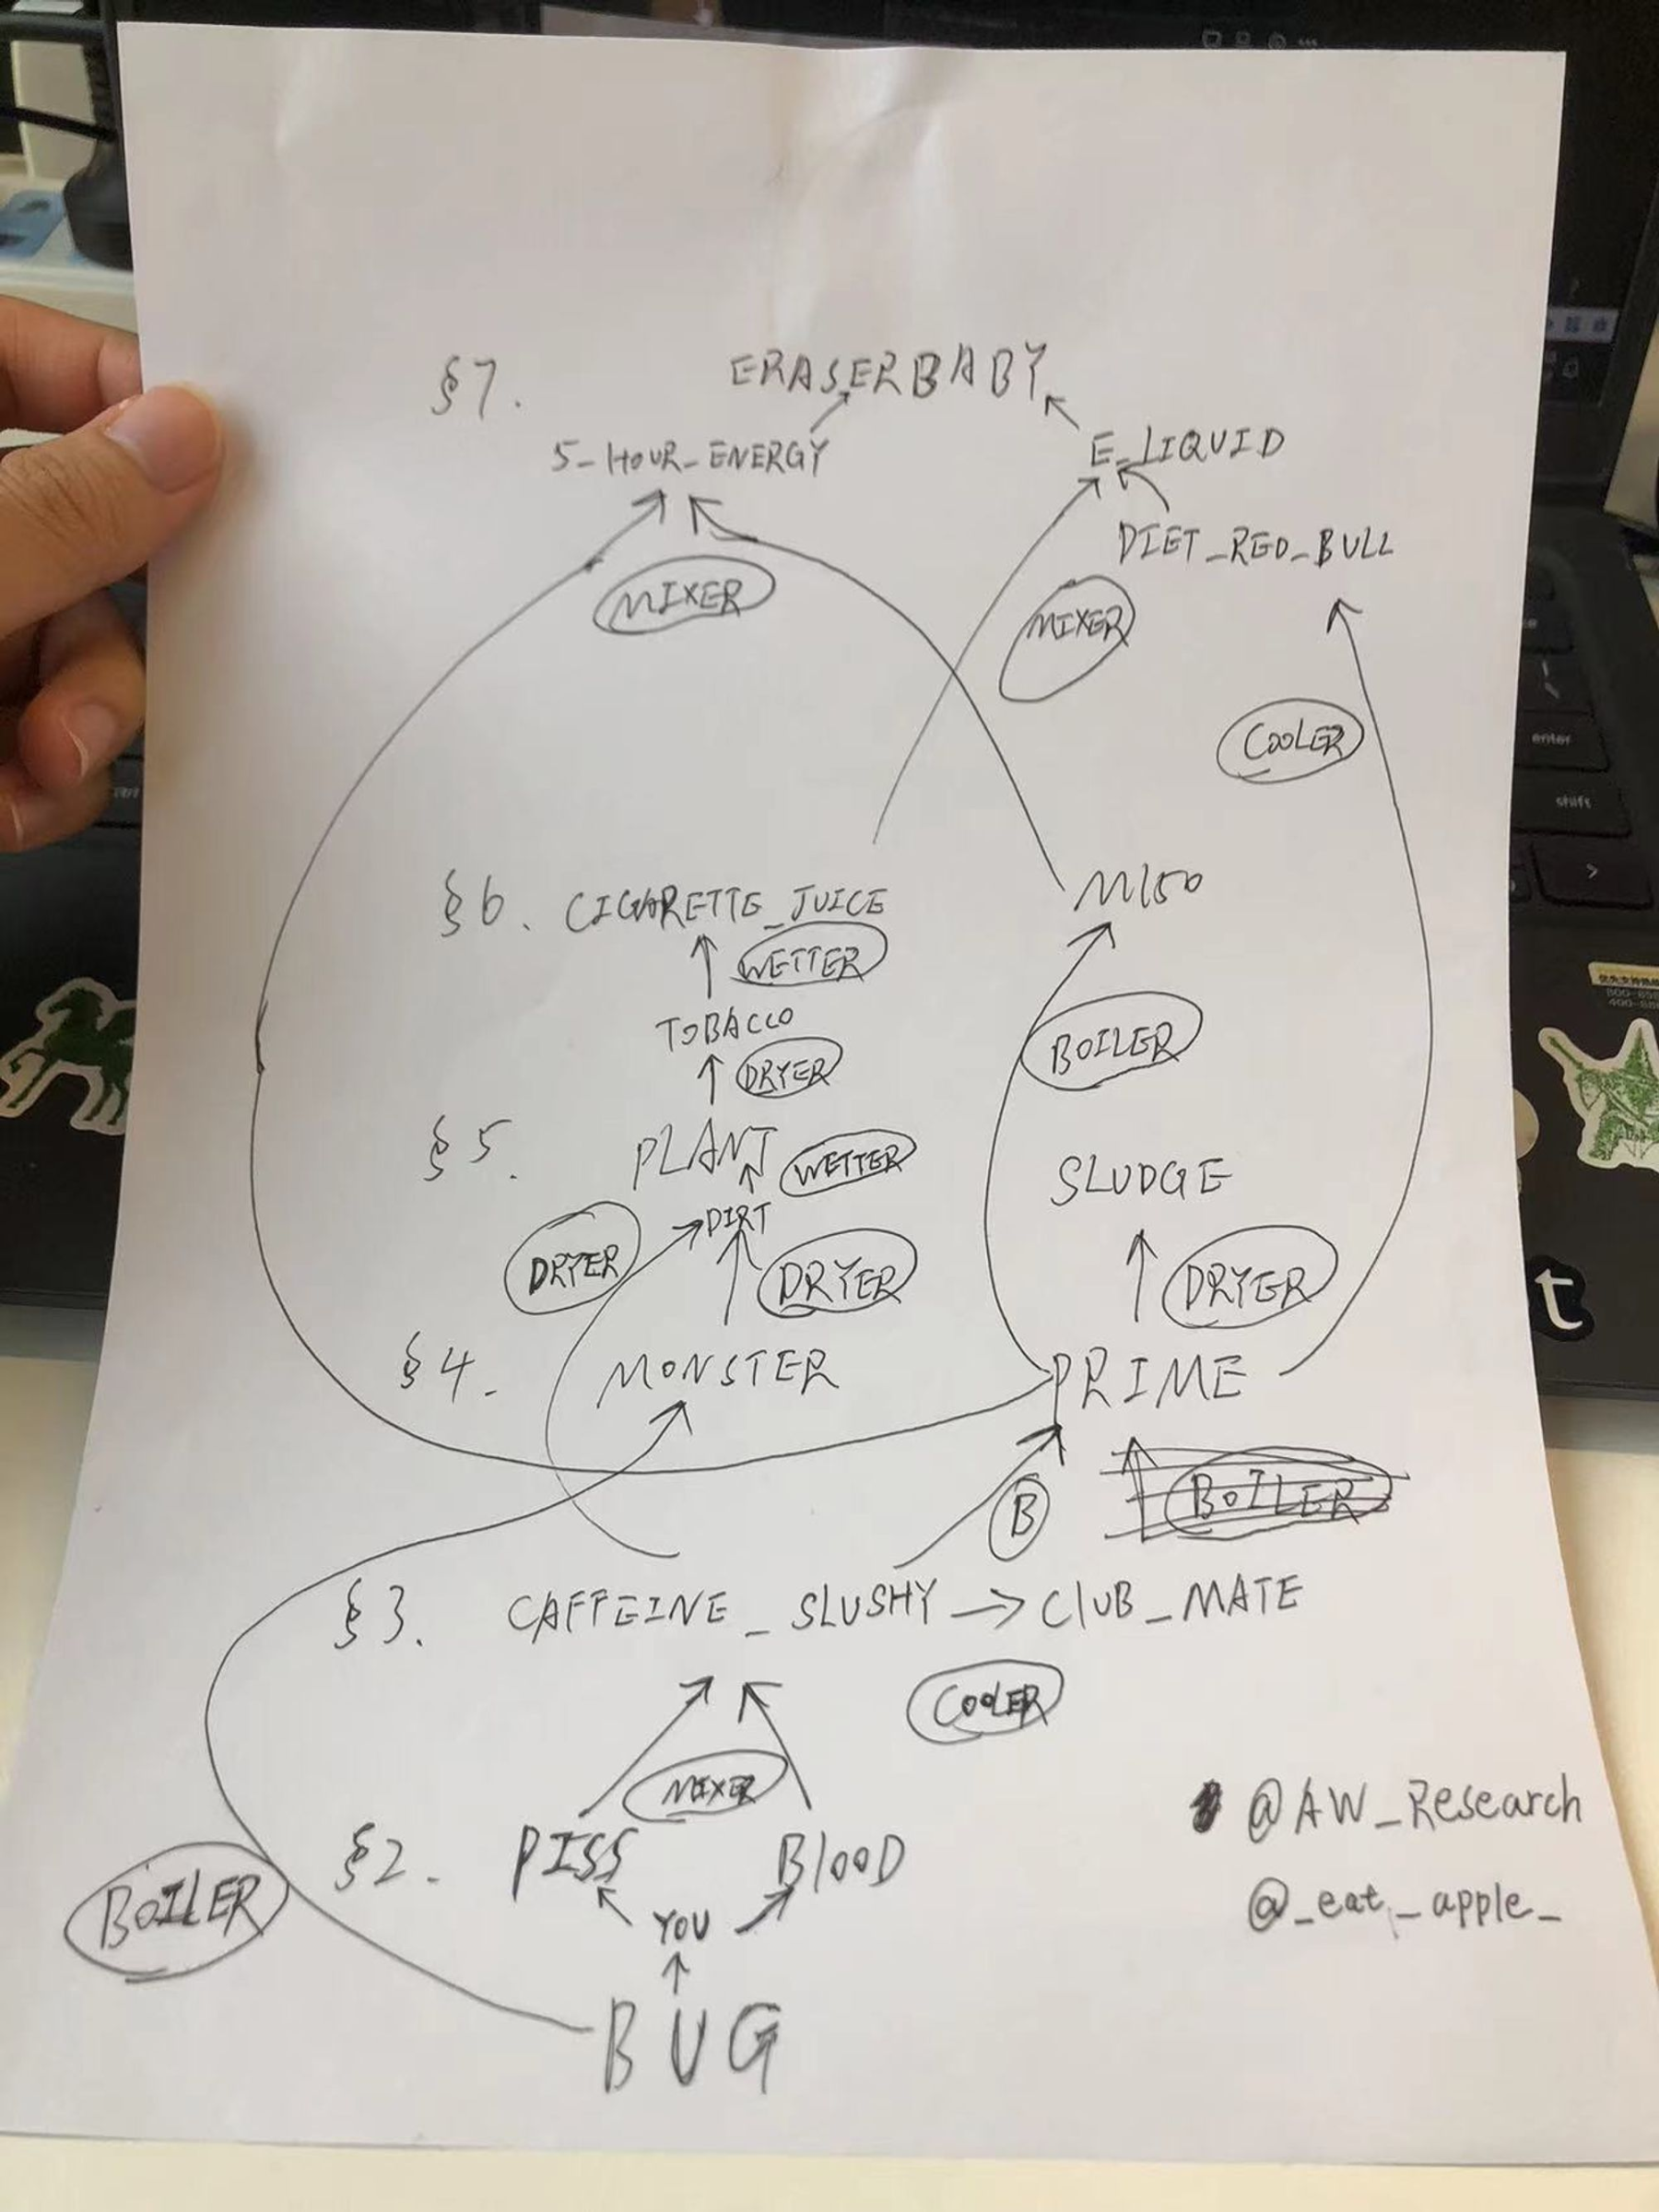 §7. ERASERBABY
5_HOUR_ENERGY E_LIQUID
DIET_RED_BULL
MIXER MIXER
COOLER
§6. CIGARETTE_JUICE M150
WETTER
TOBACCO BOILER
DRYER
§5. PLANT WETTER SLUDGE
DIRT
DRYER DRYER DRYER
§4. MONSTER PRIME
B BOILER
§3. CAFFEINE_SLUSHY → CLUB_MATE
COOLER
MIXER
§2. PISS BLOOD
BOILER YOU
BUG
@AW_Research
@_eat_apple_
enter
shift
t